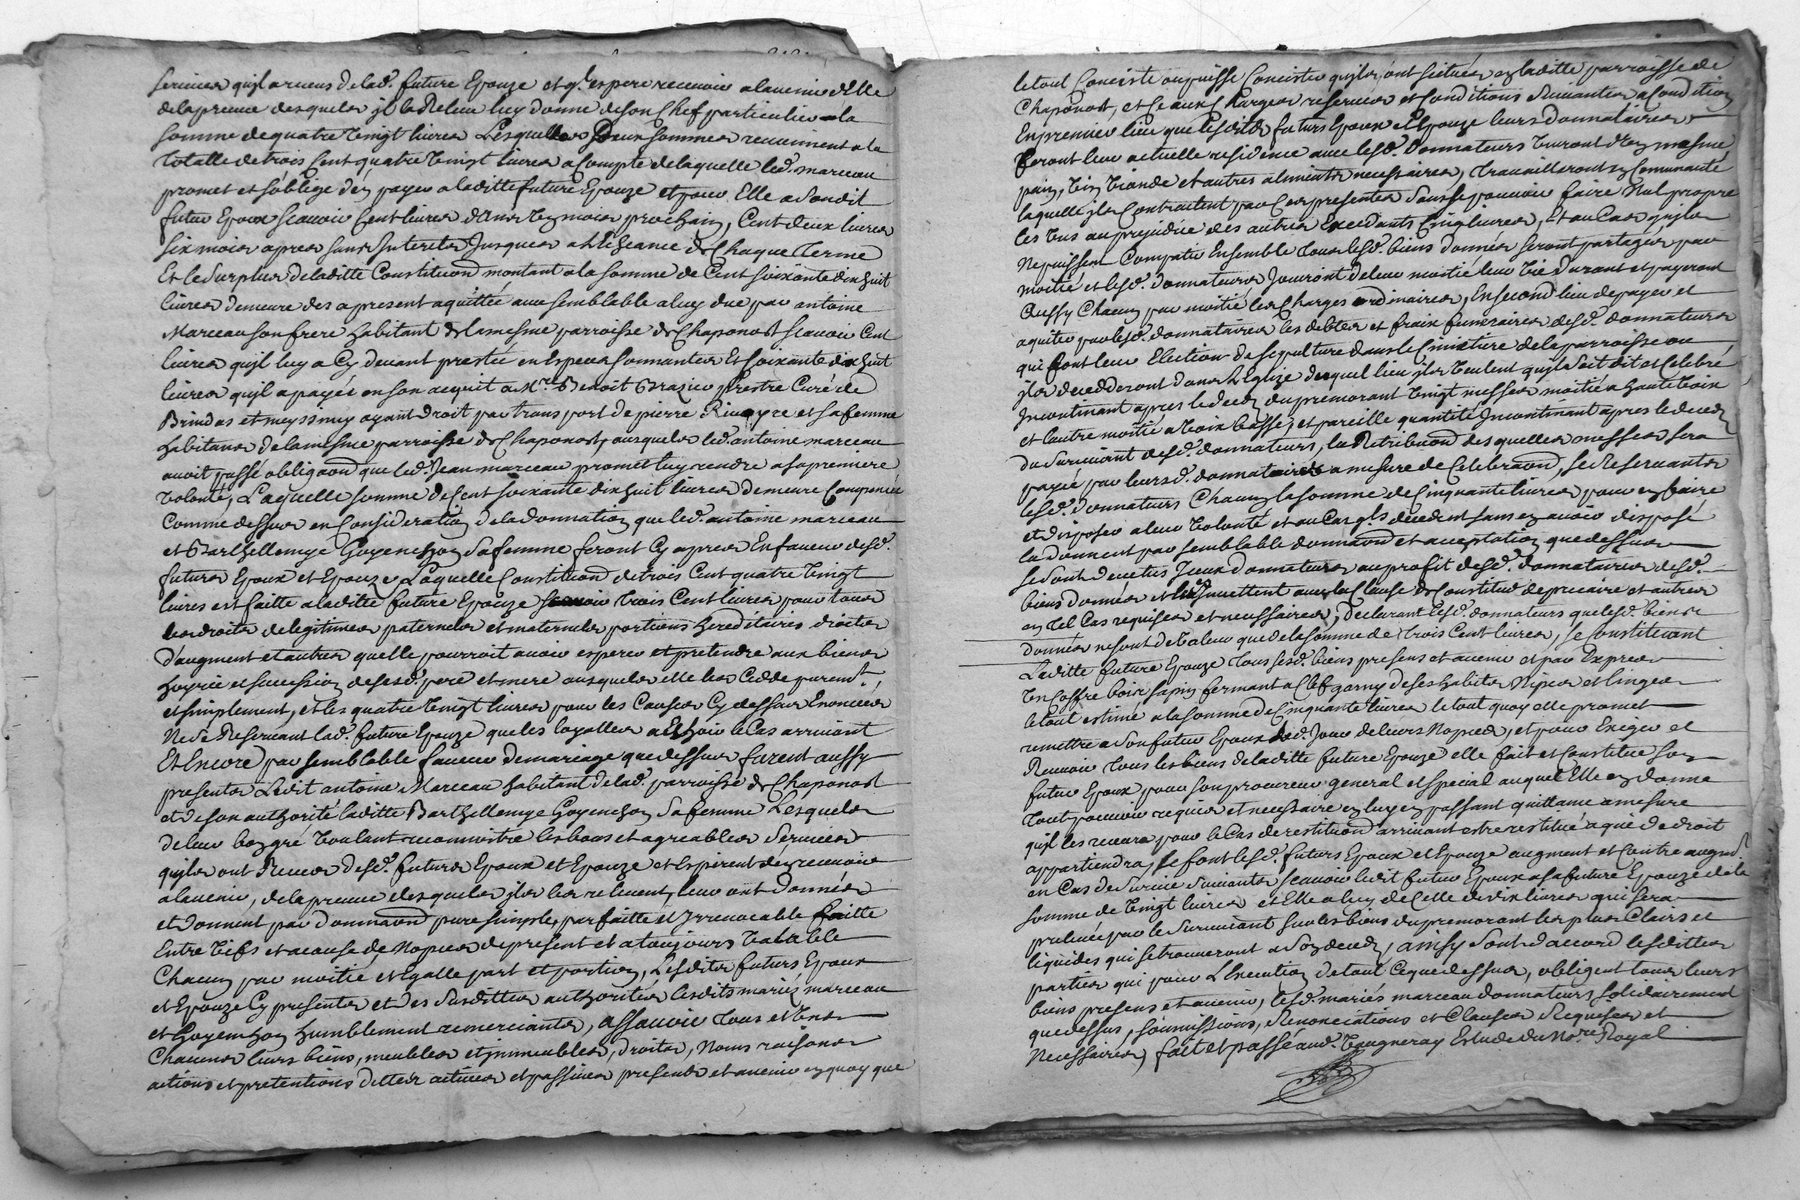 services quil a receus de lad. future Epouze et ql. espere recevoir a lavenir d'Elle
de la preuve desquels jl la Releve luy donne de son Chef particulier la
somme de quatre vingt livres Lesquelles Deux sommes reviennent a la
totalle de trois Cent quatre vingt livres a Compte de laquelle led. marceau
promet et s'oblige d'en payer a laditte future Epouze et pour Elle a sondit
futur Epoux scauoir Cent livres dans un mois prochain, Cent deux livres
six mois apres sans Interets Jusques a l'Echeance de Chaque Terme
Et le surplus de laditte Constitution montant a la somme de Cent soixante dix huit
livres demeure des a present aquittée avec semblable a luy due par antoine
Marceau son frere habitant de la mesme parroisse de Chaponost scauoir Cent
livres quil luy a Cy devant prestée en Especes sonnantes Et soixante dix huit
livres quil a payés en son acquit a Mre Benoit Brazier Prestre Curé de
Brindas et meyssimy ayant droit par transport de pierre Rivoyre et sa femme
habitans de la mesme parroisse de Chaponost, ausquels led. antoine marceau
auoit passé obligaon que led. Jean marceau promet luy rendre a sa premiere
volonté, Laquelle somme de Cent soixante dix huit livres demeure Compensée
Comme dessus en Consideration de la donnation que led. antoine marceau
et Barthellemye Goyenchon sa femme feront Cy apres En faveur desd.
futurs Epoux et Epouze, Laquelle Constitution de trois Cent quatre vingt
livres est faitte a laditte future Epouze scauoir trois Cent livres pour tous
les droits de legitimes paternels et maternels portions hereditaires droits
d'augment et autres quelle pourroit auoir esperer et pretendre aux biens
hoyrie et succession de sesd. pere et mere ausquels elle les Cedde puremt.
et simplement, et les quatre vingt livres pour les Causes Cy dessus Enoncées
Ne se Reservant lad. future Epouze que les loyalles a Echoir le Cas arrivant
Et Encore par semblable faveur de mariage que dessus furent aussy
presents Ledit antoine Marceau habitant de lad. parroisse de Chaponost
et de son authorité laditte Barthellemye Goyenchon sa femme Lesquels
de leur bon gré voulant reconnoitre les bons et agreables services
quils ont Receus desd. futurs Epoux et Epouze et Esperent den recevoir
a lavenir, de la preuve desquels jls les relevent, leur ont donnés
et donnent par donnaon pure simple, parfaitte et Irrevocable faitte
Entre vifs et a cause de Nopces de present et a toujours valable
Chacun par moitié et Egalle part et portion, Lesdits futurs Epoux
et Epouze Cy presents et des susdittes authorités lesdits mariés marceau
et Goyenchon humblement remerciants, assavoir tous et Uns
Chacuns leurs biens, meubles et jmmeubles, droits, Noms raisons
actions et pretentions dettes actives et passives presents et avenir en quoy que
le tout Conciste ou puisse Concister quils ont scituées en laditte parroisse de
Chaponost, et Ce aux Charges reserves et Conditions suivantes a Condition
En premier lieu que lesdits futurs Epoux et Epouze leurs donnataires
feront leur actuelle residence avec lesd. donnateurs vivront d'un mesme
pain, vin viande et autres aliments necessaires, travailleront en Communauté
laquelle jls Contractent par Ces presentes sans se pouvoir faire Nul propre
les Uns au prejudice des autres Excedants Cinq livres, Et au Cas quils
Ne puissent Compatir Ensemble tous lesd. biens donnés seront partagés par
moitié et lesd. donnateurs jouiront de leur moitié leur vie durant et payeront
Aussy Chacun par moitié les Charges ordinaires, En second lieu de payer et
aquiter par lesd. donnataires les debtes et fraix funeraires desd. donnateurs
qui font leur Election de sepulture dans le Cimetiere de la parroisse ou
jls decedderont dans l'Eglize duquel lieu jls veulent quils soit dit et Celebré
Incontinant apres le decez du premorant vingt messes moitié a haute voix
et lautre moitié a voix basse, et pareille quantité Incontinant apres le decez
du survivant desd. donnateurs, la Retribuon desquelles messes sera
payée par leursd. donnataires a mesure de Celebraon, se Reservants
lesd. donnateurs Chacun la somme de Cinquante livres pour en faire
et disposer a leur volonté et au Cas qls. decedent sans en avoir disposé
la donnent par semblable donnaon et acceptation que dessus
se sont devetus Iceux donnateurs au profit desd. donnataires desd.
biens donnés et les jnvettent avec la Clause de Constitut de precaire et autres
en tel Cas requises et necessaires, declarant lesd. donnateurs que lesd. biens
donnés ne sont de valeur que de la somme de trois Cent livres, se Constituant
Laditte future Epouze tous sesd. biens presens et avenir et par Expres
Un Coffre bois sapin fermant a Clef garny de ses habits Nipes et linges
le tout estimé a la somme de Cinquante livres le tout quoy elle promet
remettre a son futur Epoux led. Jour de leurs Nopces, et pour Exiger et
Recevoir tous les biens de laditte future Epouze elle fait et Constitue son
futur Epoux pour son procureur general et special auquel Elle en donne
tout pouvoir requis et necessaire en luy en passant quittance a mesure
quil les recevra pour le Cas de restitution arrivant estre restitué a qui de droit
appartiendra, se font lesd. futurs Epoux et Epouze augment et Contre augmt.
en Cas de survie suivants scauoir ledit futur Epoux a sa future Epouze de la
somme de vingt livres et Elle a luy de Celle de dix livres qui sera
prelevée par le survivant sur les biens du premorant les plus Clairs et
liquides qui se trouveront a son decez, ainsy sont d'accord lesdittes
parties qui pour L'Execution de tout Ce que dessus, obligent tous leurs
biens presens et avenir, lesd. mariés marceau donnateurs solidairement
que dessus, soumissions, Renonciations et Clauses Requises et
Necessaires, fait et passé aud. Vaugneray Estude du Nore. Royal